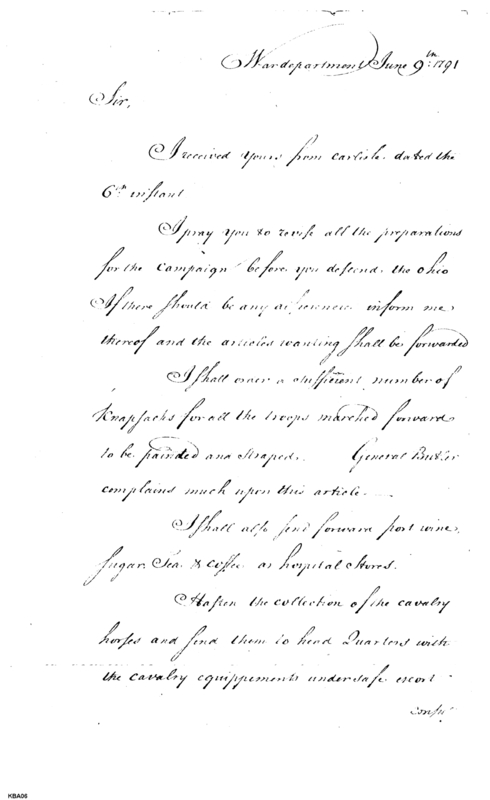 War department June 9th 1791
Sir,
I received yours from Carlisle dated the
6th instant
I pray you to revise all the preparations
for the campaign before you descend the Ohio
If there should be any deficiencies inform me
thereof and the articles wanting shall be forwarded
I shall order a sufficient number of
Knapsacks for all the troops marched forward
to be painted and straped. General Butler
complains much upon this article.
I shall also send forward port wine,
sugar, Tea & coffee as hospital stores.
Hasten the collection of the cavalry
horses and send them to head Quarters with
the cavalry equippements under safe escort
KBA06